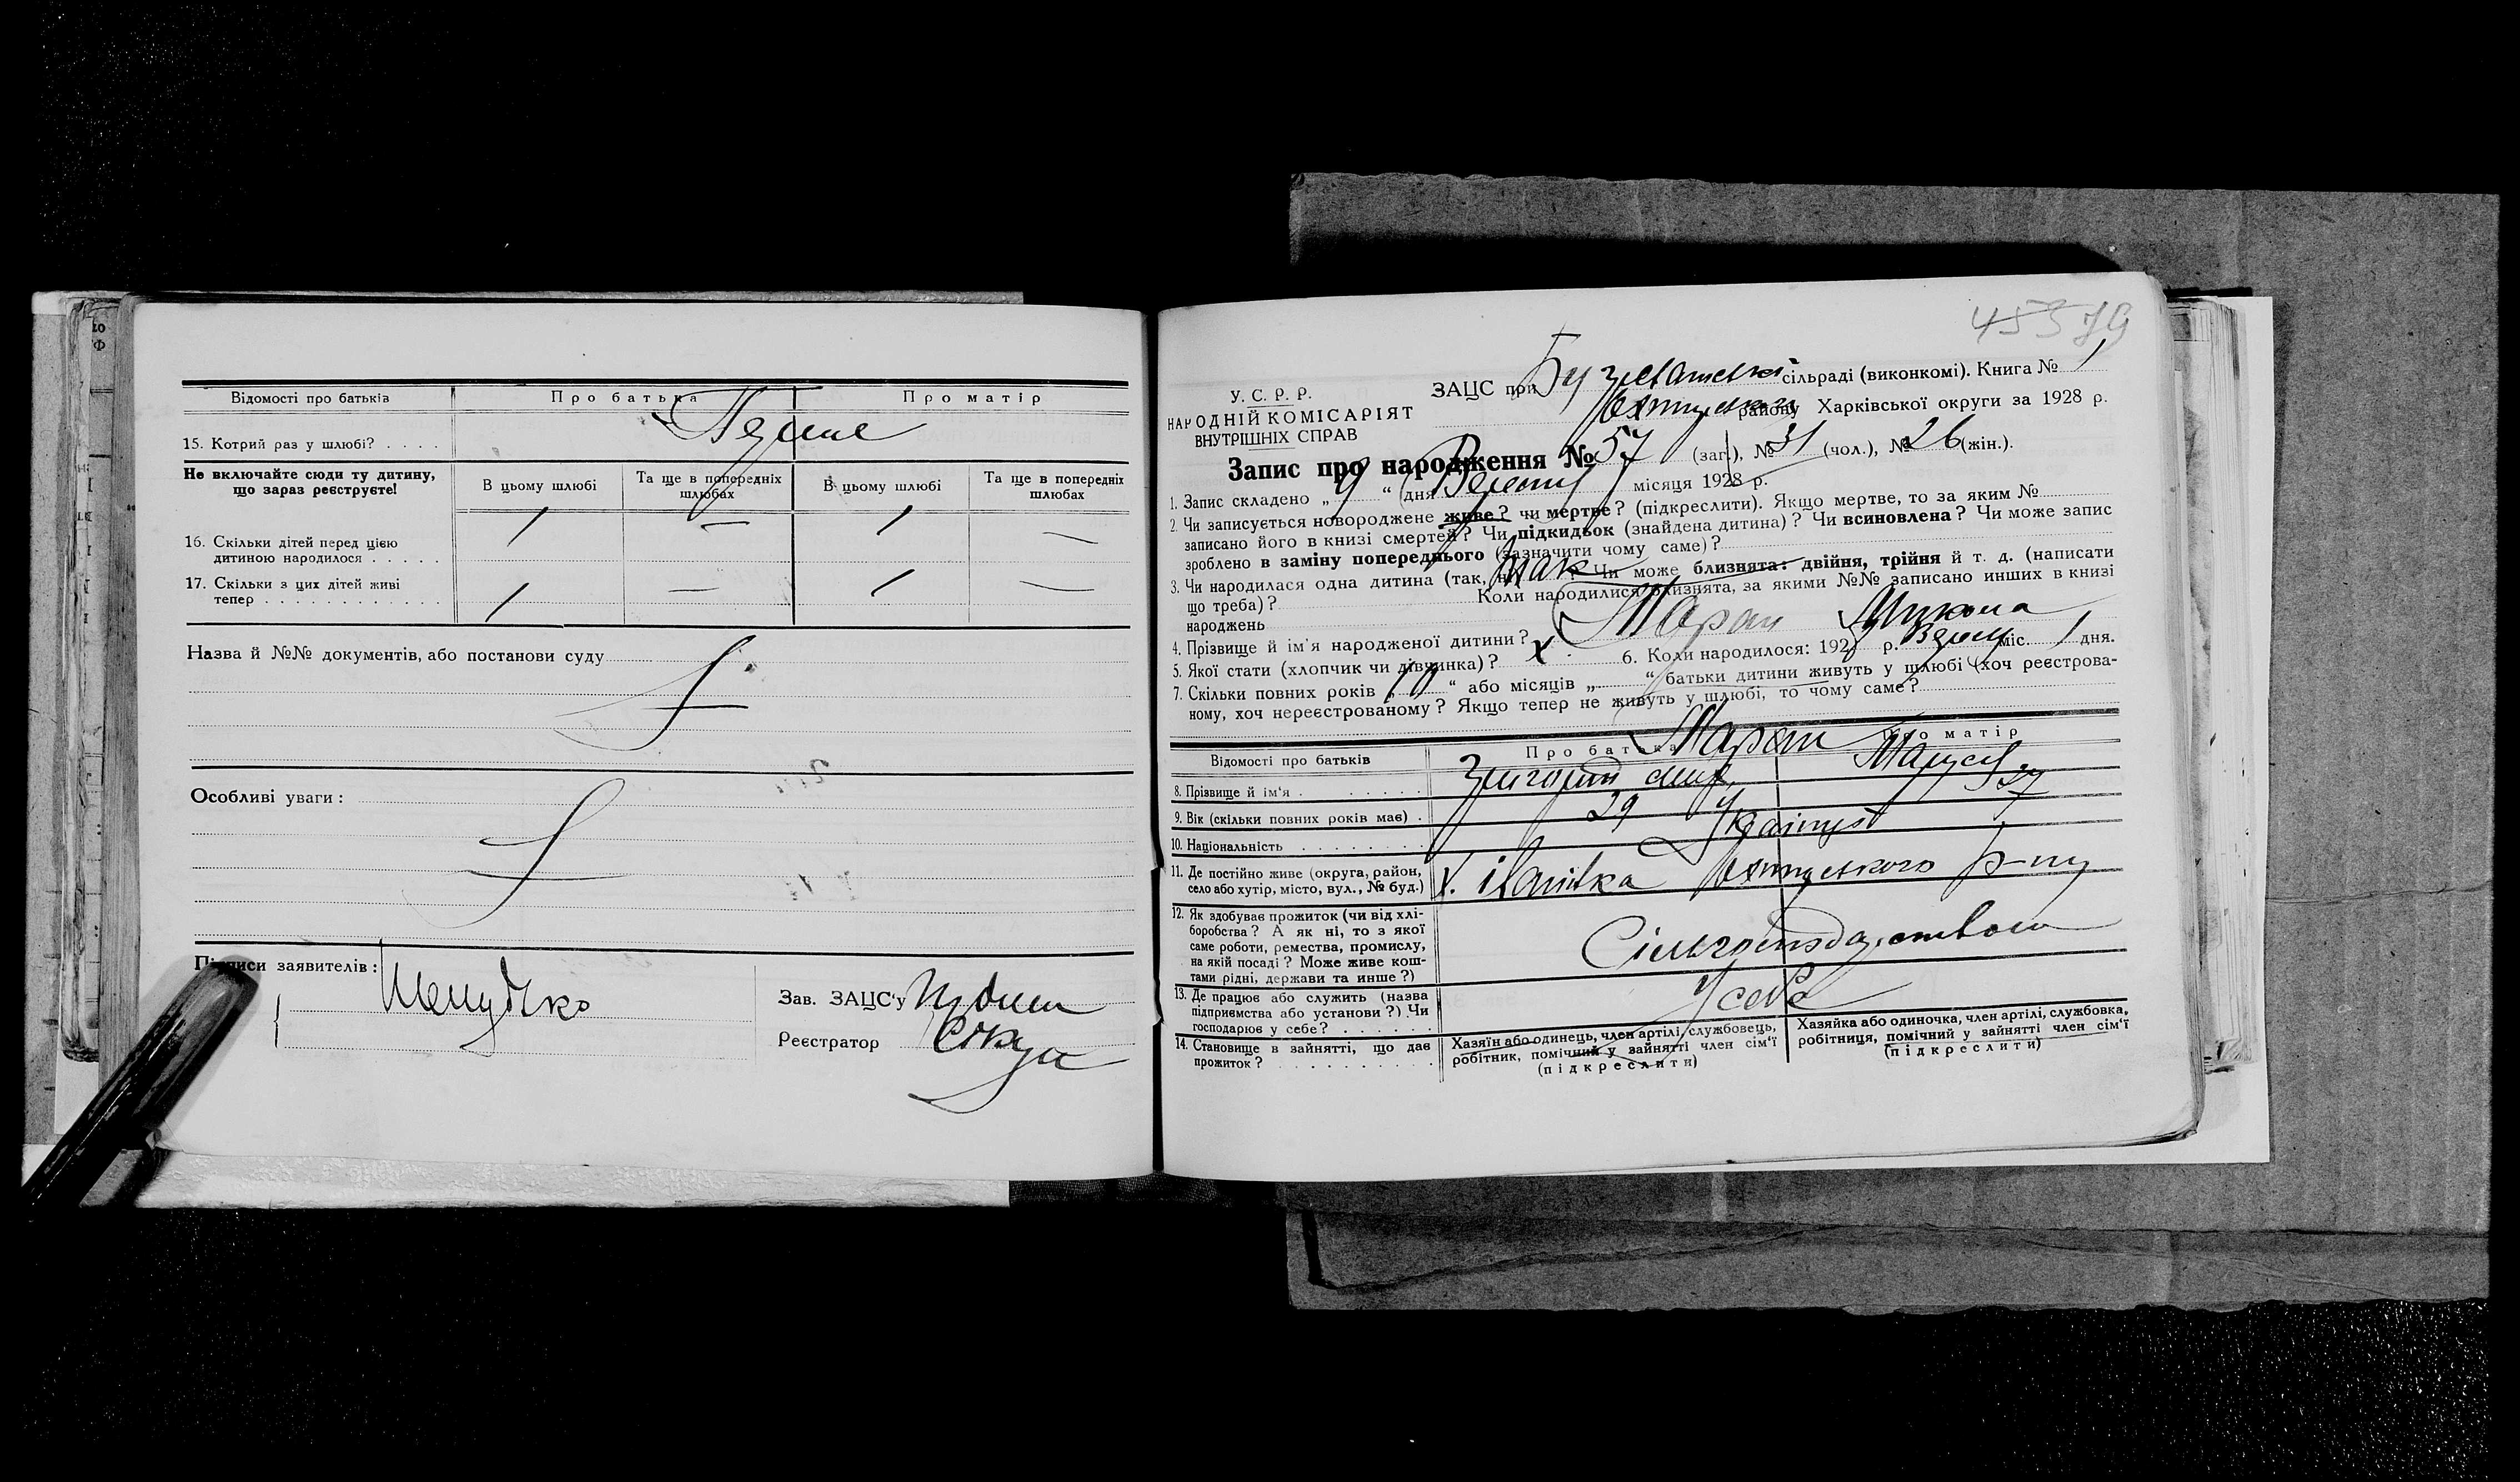 Відомості про батьків Про батька Про матір
15. Котрий раз у шлюбі? . . . .
Не включайте сюди ту дитину, що зараз реєструєте!
В цьому шлюбі
Та ще в попередніх шлюбах
В цьому шлюбі
Та ще в попередніх шлюбах
16. Скільки дітей перед цією
дитиною народилося . . . . .
1 — 1 —
17. Скільки з цих дітей живі
тепер . . . . . . . . . . . .
1 — 1 —
Назва й №№ документів, або постанови суду
Особливі уваги:
Підписи заявителів:
Зав. ЗАЦС'у
Реєстратор
45579
У. С. Р. Р.
НАРОДНІЙ КОМІСАРІЯТ
ВНУТРІШНІХ СПРАВ
ЗАЦС при сільраді (виконкомі). Книга № 1
району Харківської округи за 1928 р.
Запис про народження № 57 (заг.), № 31 (чол.), № 26 (жін.).
1. Запис складено „ 9 “ дня місяця 1928 р.
2. Чи записується новороджене живе? чи мертве? (підкреслити). Якщо мертве, то за яким №
записано його в книзі смертей? Чи підкидьок (знайдена дитина)? Чи всиновлена? Чи може запис
зроблено в заміну попереднього (зазначити чому саме)?
3. Чи народилася одна дитина (так, ні) так Чи може близнята: двійня, трійня й т. д. (написати
що треба)? Коли народилися близнята, за якими №№ записано инших в книзі
народжень
4. Прізвище й ім'я народженої дитини? Таран Микола
5. Якої стати (хлопчик чи дівчинка)? х 6. Коли народилося: 1928 р. міс. 1 дня.
7. Скільки повних років „ “ або місяців „ “ батьки дитини живуть у шлюбі (хоч реєстрова-
ному, хоч нереєстрованому? Якщо тепер не живуть у шлюбі, то чому саме?
Відомості про батьків Про батька Про матір
Таран
8. Прізвище й ім'я . . . . . . Григорій Маруся
9. Вік (скільки повних років має) . 29 27
10. Національність . . . . . . . .
11. Де постійно живе (округа, район,
село або хутір, місто, вул., № буд.) х. Іванівка р-ну
12. Як здобуває прожиток (чи від хлі-
боробства? А як ні, то з якої
саме роботи, ремества, промислу,
на якій посаді? Може живе кош-
тами рідні, держави та инше?)
13. Де працює або служить (назва
підприємства або установи?) Чи
господарює у себе? . . . . . . У себе
14. Становище в зайнятті, що дає
прожиток? . . . . . . . . . .
Хазяїн або одинець, член артілі, службовець,
робітник, помічний у зайнятті член сім'ї
(підкреслити)
Хазяйка або одиночка, член артілі, службовка,
робітниця, помічний у зайнятті член сім'ї
(підкреслити)